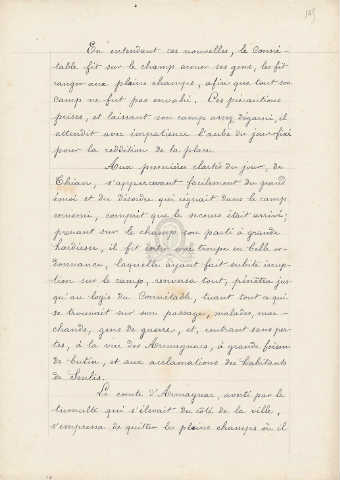 En entendant ces nouvelles, le Conné-
table fit sur le champ armer ses gens, les fit
ranger aux plains champs, afin que tout son
camp ne fut pas envahi. Ces précautions
prises, et laissant son camp assez dégarni, il
attendit avec impatience l'aube du jour fixé
pour la reddition de la place.
Aux premières clartés du jour, de
Chian, s'apercevant facilement du grand
émoi et du désordre qui régnait dans le camp
ennemi, comprit que le secours était arrivé;
prenant sur le champ son parti à grande
hardiesse, il fit sortir une troupe en belle or-
donnance, laquelle ayant fait subite irrup-
tion sur le camp, renversa tout, pénétra jus-
qu'au logis du Connétable, tuant tout ce qui
se trouvait sur son passage, malades, mar-
chands, gens de guerre, et, rentrant sans per-
tes, à la vue des Armagnacs, à grande foison
de butin, et aux acclamations des habitants
de Senlis.
Le comte d'Armagnac, averti par le
tumulte qui s'élevait du côté de la ville,
s'empressa de quitter les plains champs où il